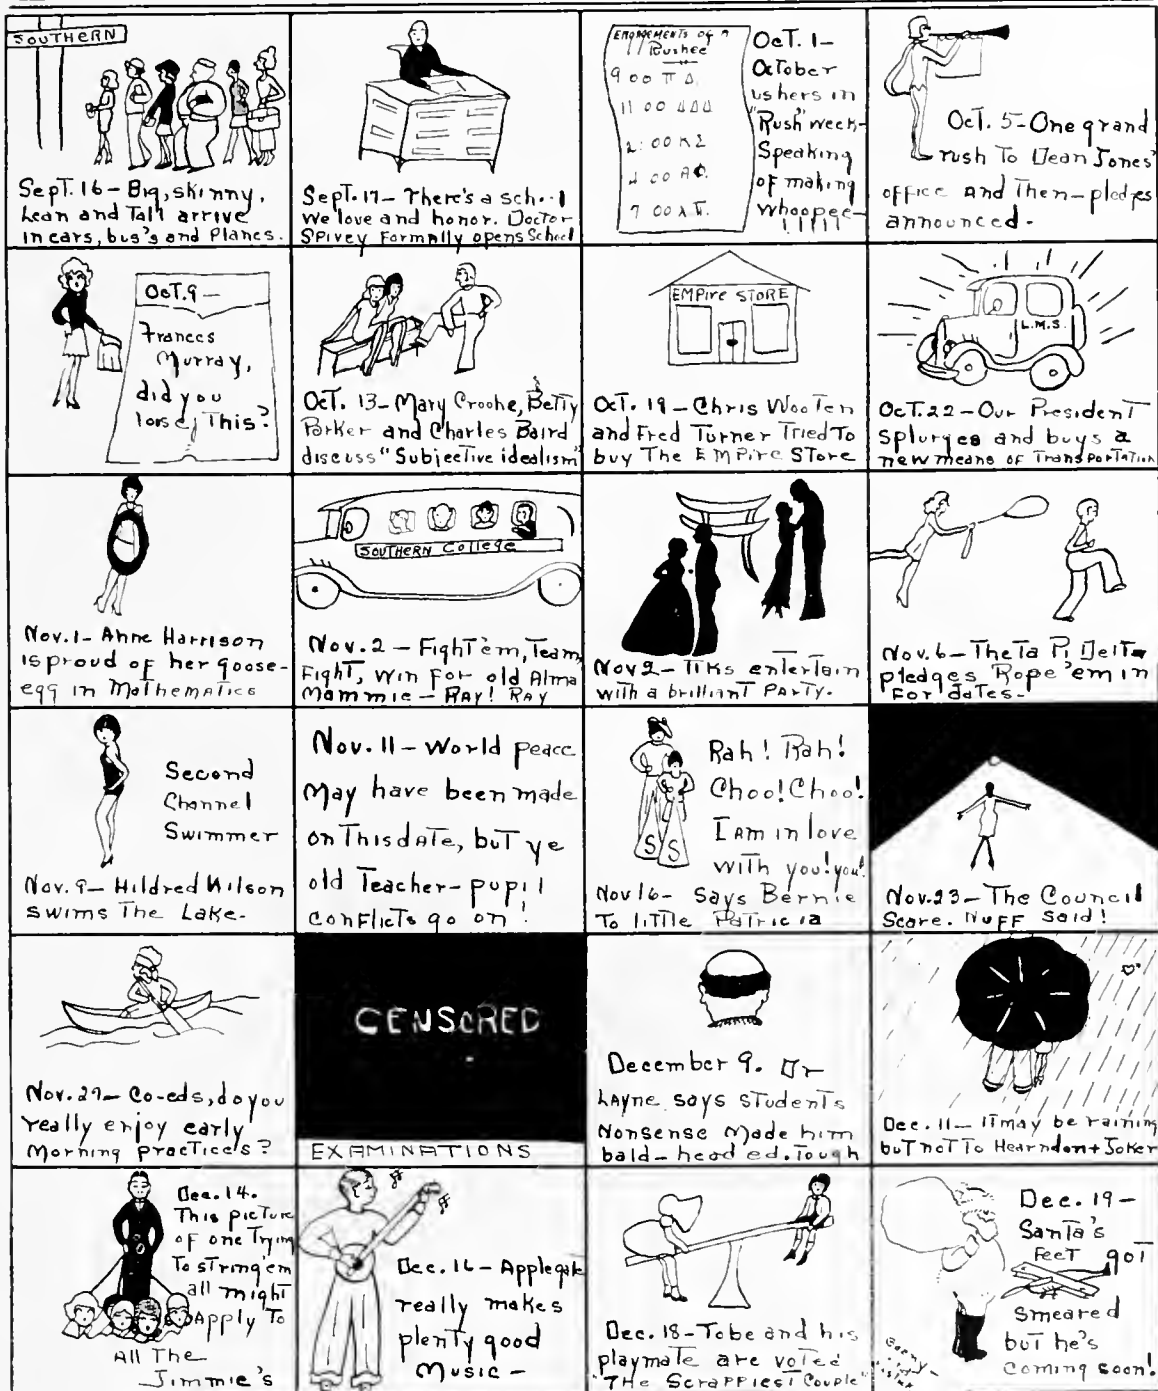 SOUTHERN
Sept. 16 – Big, skinny,
Lean and Tall arrive
in cars, bus's and Planes.
Sept. 17 – There's a school
We love and honor. Doctor
Spivey Formally opens School
ENGAGEMENTS OF A
Rushee
9 00 Π Δ
11 00 Δ Δ Δ
2:00 Κ Σ
4 00 Α Φ.
7 00
Oct. 1 –
October
ushers in
"Rush" week –
Speaking
of making
Whoopee –
! ! ! ! !
Oct. 5 – One grand
rush To Dean Jones'
office And Then – pledges
announced.
Oct. 9 –
Frances
Murray,
did you
lose, This?
Oct. 13 – Mary Crooke, Betty
Parker and Charles Baird
discuss "Subjective idealism"
EMPire STORE
Oct. 19 – Chris Wooten
and Fred Turner Tried To
buy The EMPire Store
L.M.S.
Oct. 22 – Our President
Splurges and buys a
new means of Transportation
Nov. 1 – Anne Harrison
is proud of her goose-
egg in Mathematics
SOUTHERN College
Nov. 2 – Fight 'em, Team,
Fight, win For old Alma
Mammie – RAY! RAY
Nov 2 – ΠΚs entertain
with a brilliant PArty.
Nov. 6 – Theta Pi Delta
pledges Rope 'em in
For dates –
Second
Channel
Swimmer
Nov. 9 – Hildred Wilson
swims The Lake –
Nov. 11 – World peace
May have been made
on This dATe, but ye
old Teacher – pupil
conflicts go on!
Rah! Rah!
Choo! Choo!
I Am in love
with you! you!
S S
Nov 16 – Says Bernie
To little Patricia
Nov. 23 – The Council
Scare. NUFF Said!
Nov. 27 – Co-eds, do you
really enjoy early
Morning practice's?
CENSORED
EXAMINATIONS
December 9. Dr
LAyne says students
Nonsense Made him
bald – headed. Tough
Dec. 11 – It may be raining
but not To Hearndon + Joker
Dec. 14.
This picture
of one Trying
To string 'em
all might
Apply To
All The
Jimmie's
Dec. 16 – Applegate
really makes
plenty good
Music –
Dec. 18 – Tobe and his
playmate are voted
"The Scrappiest Couple"
Dec. 19 –
Santa's
Feet got
smeared
but he's
coming soon!